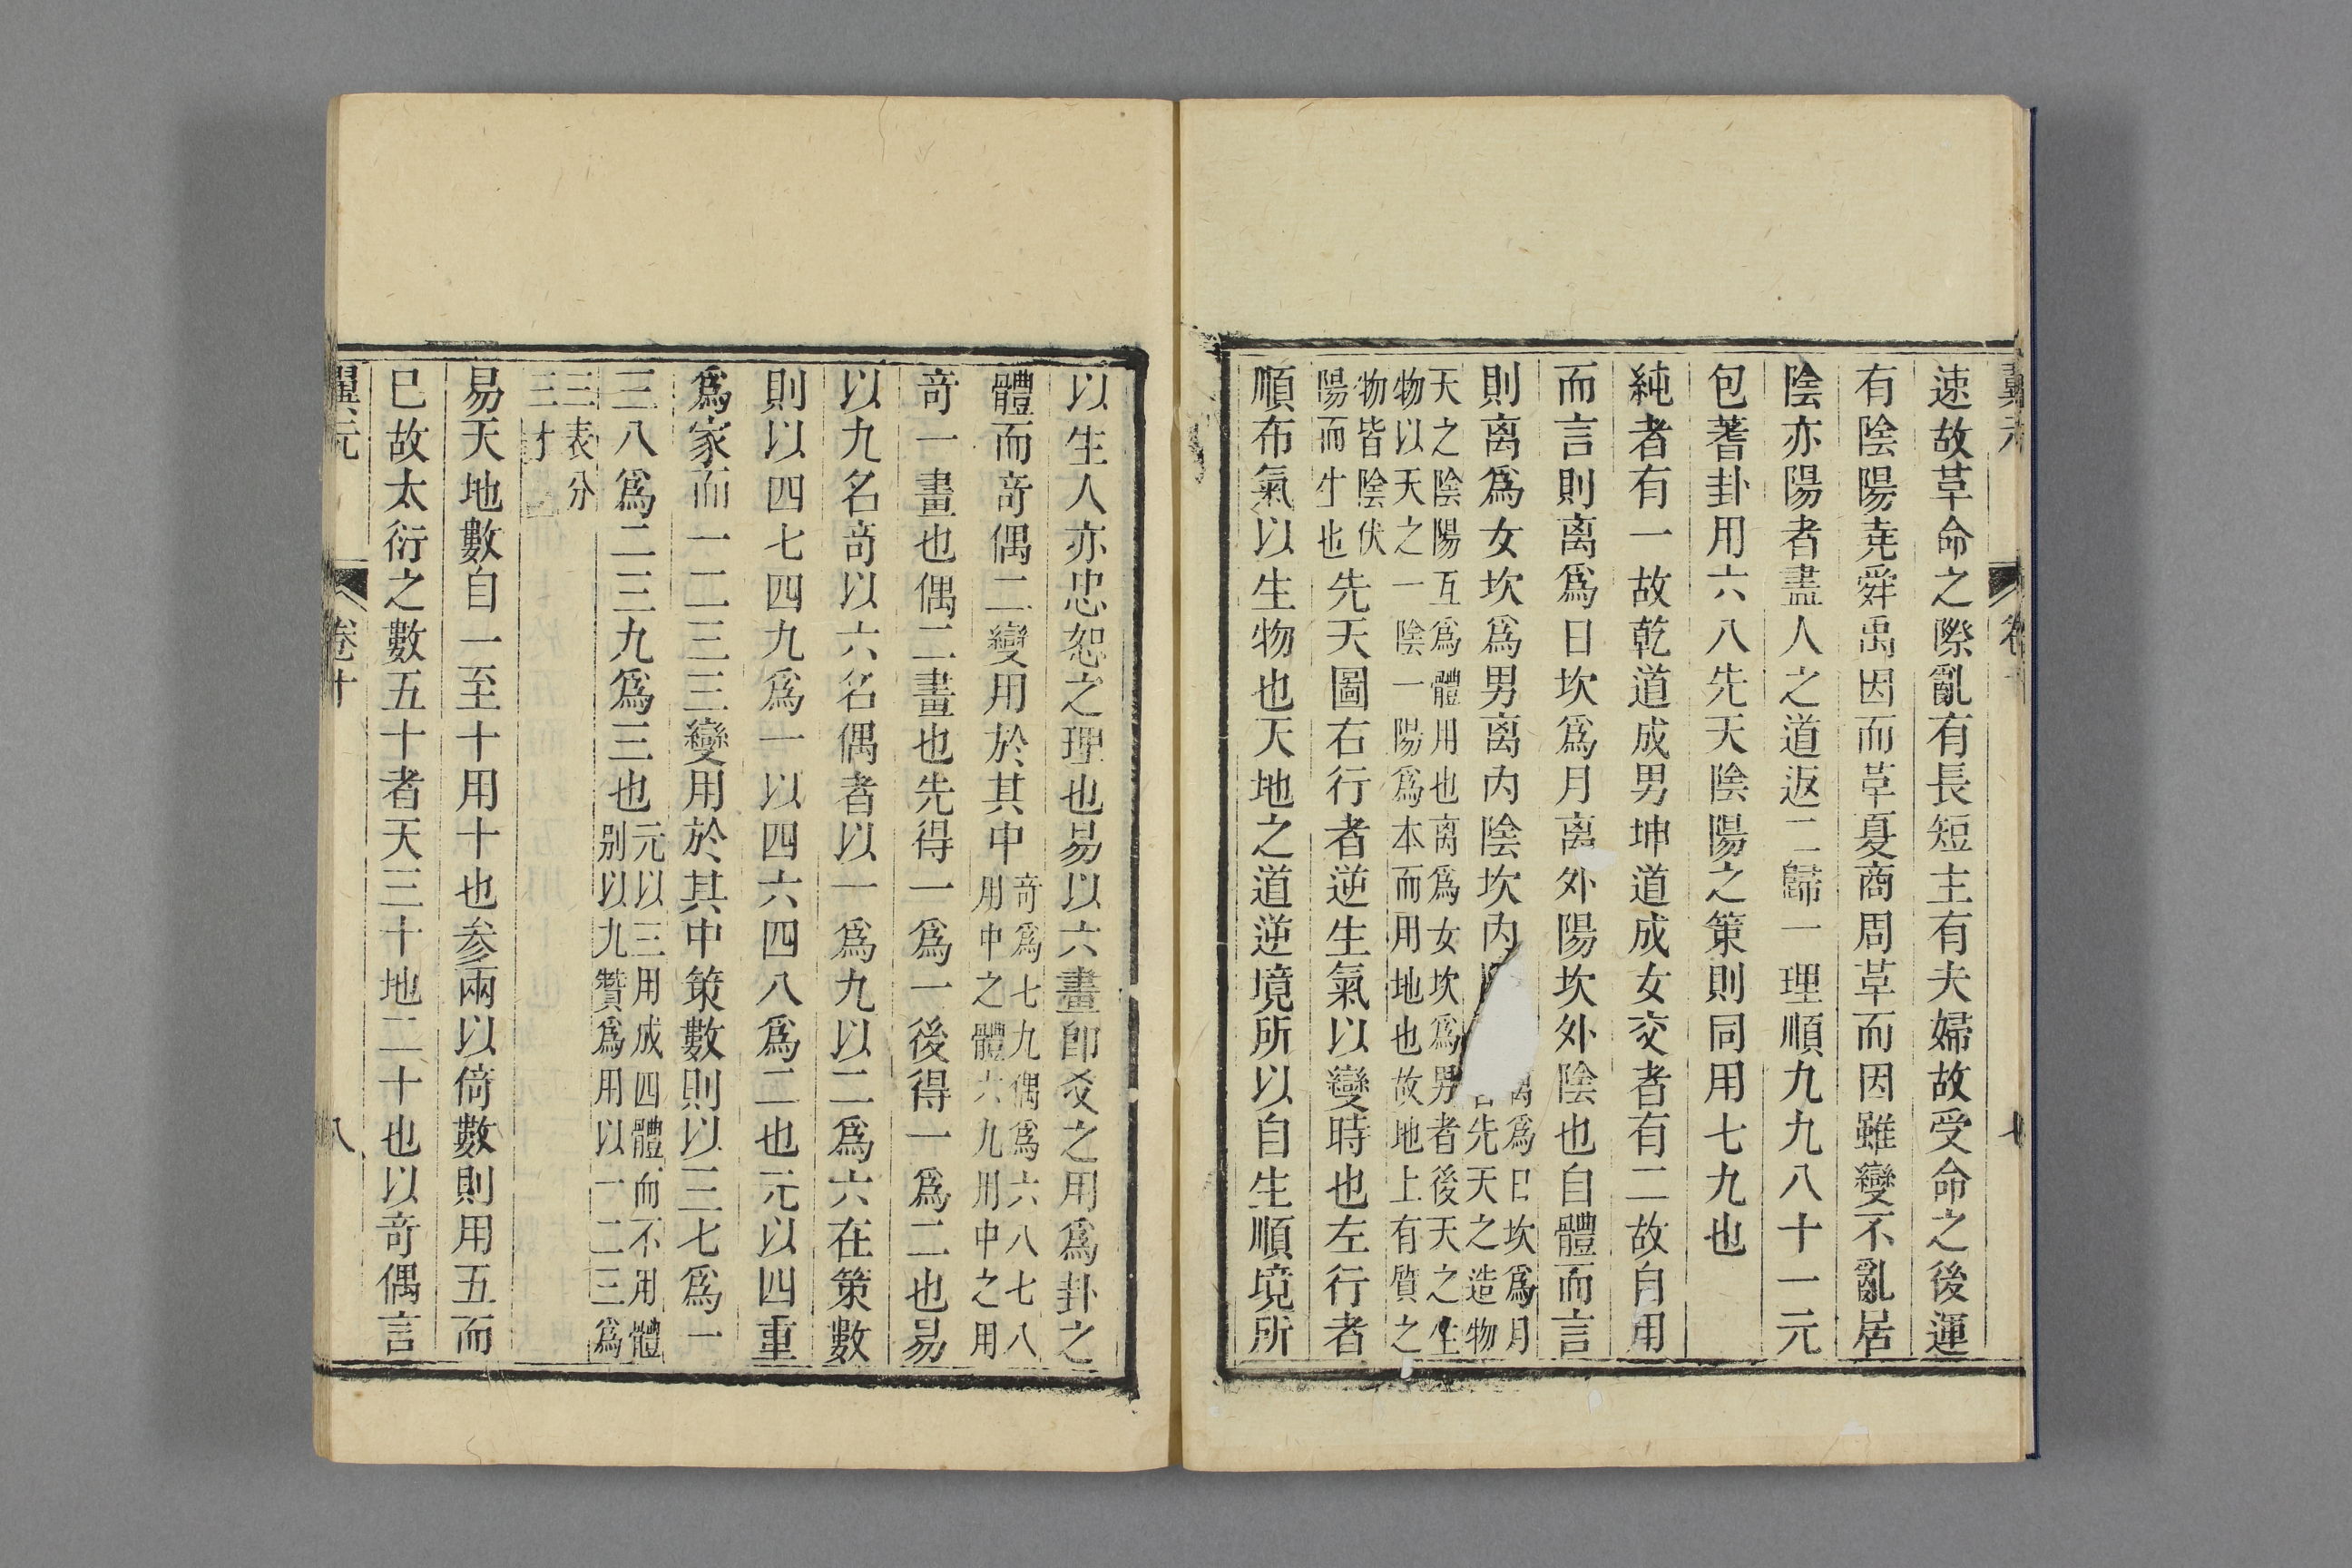 速故革命之際亂有長短主有夫婦故受命之後運
有陰陽堯舜禹因而革夏商周革而因雖變不亂居
陰亦陽者盡人之道返二歸一理順九九八十一元
包蓍卦用六八先天陰陽之策則同用七九也
純者有一故乾道成男坤道成女交者有二故自用
而言則离爲日坎爲月离外陽坎外陰也自體而言
則离爲女坎爲男离内陰坎内
爲日坎爲月
先天之造物
天之陰陽互爲體用也离爲女坎爲男者後天之生
物以天之一陰一陽爲本而用地也故地上有質之
物皆陰伏
陽而生也
先天圖右行者逆生氣以變時也左行者
順布氣以生物也天地之道逆境所以自生順境所
以生人亦忠恕之理也易以六畫卽爻之用爲卦之
體而竒偶二變用於其中
竒爲七九偶爲六八七八
用中之體六九用中之用
竒一畫也偶二畫也先得一爲一後得一爲二也易
以九名竒以六名偶者以一爲九以二爲六在策數
則以四七四九爲一以四六四八爲二也元以四重
爲家而一二三三變用於其中策數則以三七爲一
三八爲二三九爲三也
元以三用成四體而不用體
别以九贊爲用以一二三爲
三表分
三才
易天地數自一至十用十也参兩以倚數則用五而
巳故太衍之數五十者天三十地二十也以竒偶言
翼元
卷十
八